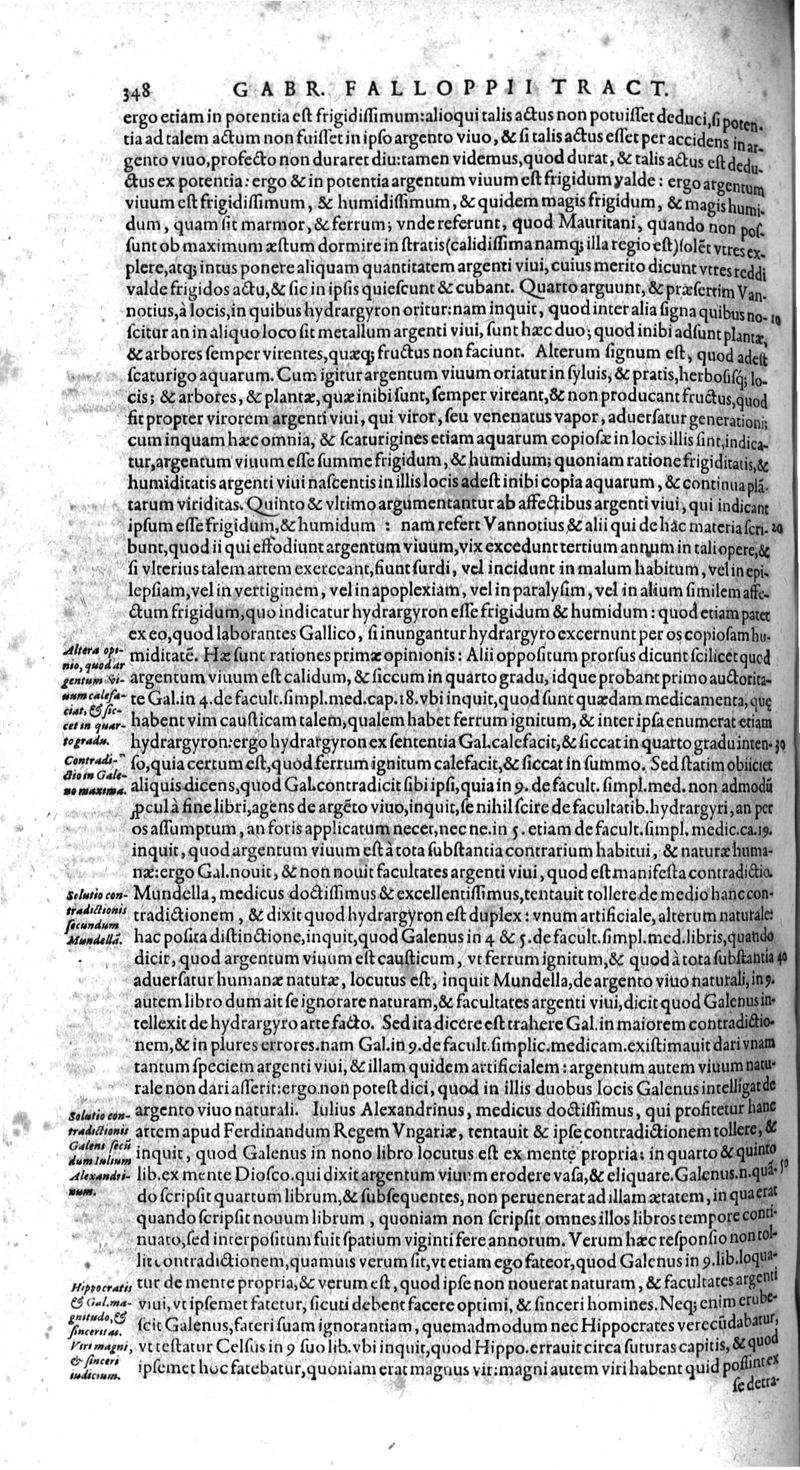 348 GABR. FALLOPPII TRACT.
ergo etiam in potentia est frigidissimum: alioqui talis actus non potuisset deduci, si poten-
tia ad talem actum non fuisset in ipso argento viuo, & si talis actus esset per accidens in ar-
gento viuo, profecto non duraret diu: tamen videmus, quod durat, & talis actus est dedu-
ctus ex potentia: ergo & in potentia argentum viuum est frigidum valde: ergo argentum
viuum est frigidissimum, & humidissimum, & quidem magis frigidum, & magis humi-
dum, quam sit marmor, & ferrum; vnde referunt, quod Mauritani, quando non pos-
sunt ob maximum æstum dormire in stratis (calidissima namq; illa regio est) solēt vtres ex-
plere, atq; intus ponere aliquam quantitatem argenti viui, cuius merito dicunt vtres reddi
valde frigidos actu, & sic in ipsis quiescunt & cubant. Quarto arguunt, & præsertim Van-
notius, à locis, in quibus hydrargyron oritur: nam inquit, quod inter alia signa quibus no- 10
scitur an in aliquo loco sit metallum argenti viui, sunt hæc duo; quod inibi adsunt plantæ,
& arbores semper virentes, quæq; fructus non faciunt. Alterum signum est, quod adest
scaturigo aquarum. Cum igitur argentum viuum oriatur in syluis, & pratis, herbosisq; lo-
cis; & arbores, & plantæ, quæ inibi sunt, semper vireant, & non producant fructus, quod
fit propter virorem argenti viui, qui viror, seu venenatus vapor, aduersatur generationi;
cum inquam hæc omnia, & scaturigines etiam aquarum copiosæ in locis illis sint, indica-
tur, argentum viuum esse summe frigidum, & humidum; quoniam ratione frigiditatis, &
humiditatis argenti viui nascentis in illis locis adest inibi copia aquarum, & continua plā-
tarum viriditas. Quinto & vltimo argumentantur ab affectibus argenti viui, qui indicant
ipsum esse frigidum, & humidum : nam refert Vannotius & alii qui de hac materia scri- 20
bunt, quod ii qui effodiunt argentum viuum, vix excedunt tertium annum in tali opere, &
si vlterius talem artem exerceant, fiunt surdi, vel incidunt in malum habitum, vel in epi-
lepsiam, vel in vertiginem, vel in apoplexiam, vel in paralysim, vel in alium similem affe-
ctum frigidum, quo indicatur hydrargyron esse frigidum & humidum: quod etiam patet
ex eo, quod laborantes Gallico, si inungantur hydrargyro excernunt per os copiosam hu-
Altera opi-
nio, quod ar
gentum vi-
uum calefa-
ciat, & sic-
cet in quar-
to gradu.
miditatē. Hæ sunt rationes primæ opinionis: Alii oppositum prorsus dicunt scilicet quod
argentum viuum est calidum, & siccum in quarto gradu, idque probant primo auctorita-
te Gal. in 4. de facult. simpl. med. cap. 18. vbi inquit, quod sunt quædam medicamenta, quę
habent vim causticam talem, qualem habet ferrum ignitum, & inter ipsa enumerat etiam
hydrargyron: ergo hydrargyron ex sententia Gal. calefacit, & siccat in quarto gradu inten- 30
Contradi-
ctio in Gale-
no maxima.
so, quia certum est, quod ferrum ignitum calefacit, & siccat in summo. Sed statim obiiciet
aliquis dicens, quod Gal. contradicit sibi ipsi, quia in 9. de facult. simpl. med. non admodū
ꝓcul à fine libri, agens de argēto viuo, inquit, se nihil scire de facultatib. hydrargyri, an per
os assumptum, an foris applicatum necet, nec ne. in 5. etiam de facult. simpl. medic. ca. 19.
inquit, quod argentum viuum est à tota substantia contrarium habitui, & naturæ huma-
næ: ergo Gal. nouit, & non nouit facultates argenti viui, quod est manifesta contradictio.
Solutio con-
tradictionis
secundum
Mundellā.
Mundella, medicus doctissimus & excellentissimus, tentauit tollere de medio hanc con-
tradictionem, & dixit quod hydrargyron est duplex: vnum artificiale, alterum naturale:
hac posita distinctione, inquit, quod Galenus in 4 & 5. de facult. simpl. med. libris, quando
dicit, quod argentum viuum est causticum, vt ferrum ignitum, & quod à tota substantia 40
aduersatur humanæ naturæ, locutus est, inquit Mundella, de argento viuo naturali, in 9.
autem libro dum ait se ignorare naturam, & facultates argenti viui, dicit quod Galenus in-
tellexit de hydrargyro arte facto. Sed ita dicere est trahere Gal. in maiorem contradictio-
nem, & in plures errores. nam Gal. in 9. de facult. simplic. medicam. existimauit dari vnam
tantum speciem argenti viui, & illam quidem artificialem: argentum autem viuum natu-
rale non dari asserit: ergo non potest dici, quod in illis duobus locis Galenus intelligat de
Solutio con-
tradictionis
Galeni secū
dum Iulium
Alexandri-
num.
argento viuo naturali. Iulius Alexandrinus, medicus doctissimus, qui profitetur hanc
artem apud Ferdinandum Regem Vngariæ, tentauit & ipse contradictionem tollere, &
inquit, quod Galenus in nono libro locutus est ex mente propria; in quarto & quinto
lib. ex mente Diosco. qui dixit argentum viuum erodere vasa, & eliquare. Galenus. n. quā- 50
do scripsit quartum librum, & subsequentes, non peruenerat ad illam ætatem, in qua erat
quando scripsit nouum librum, quoniam non scripsit omnes illos libros tempore conti-
nuato, sed interpositum fuit spatium viginti fere annorum. Verum hæc responsio non tol-
lit contradictionem, quamuis verum sit, vt etiam ego fateor, quod Galenus in 9. lib. loqua-
Hippocratis
& Gal. ma-
gnitudo, &
sinceritas.
Viri magni,
& sinceri
iudicium.
tur de mente propria, & verum est, quod ipse non nouerat naturam, & facultates argenti
viui, vt ipsemet fatetur, sicuti debent facere optimi, & sinceri homines. Neq; enim erube-
scit Galenus, fateri suam ignorantiam, quemadmodum nec Hippocrates verecūdabatur,
vt testatur Celsus in 9 suo lib. vbi inquit, quod Hippo. errauit circa suturas capitis, & quod
ipsemet hoc fatebatur, quoniam erat magnus vir: magni autem viri habent quid possint ex
se detra-